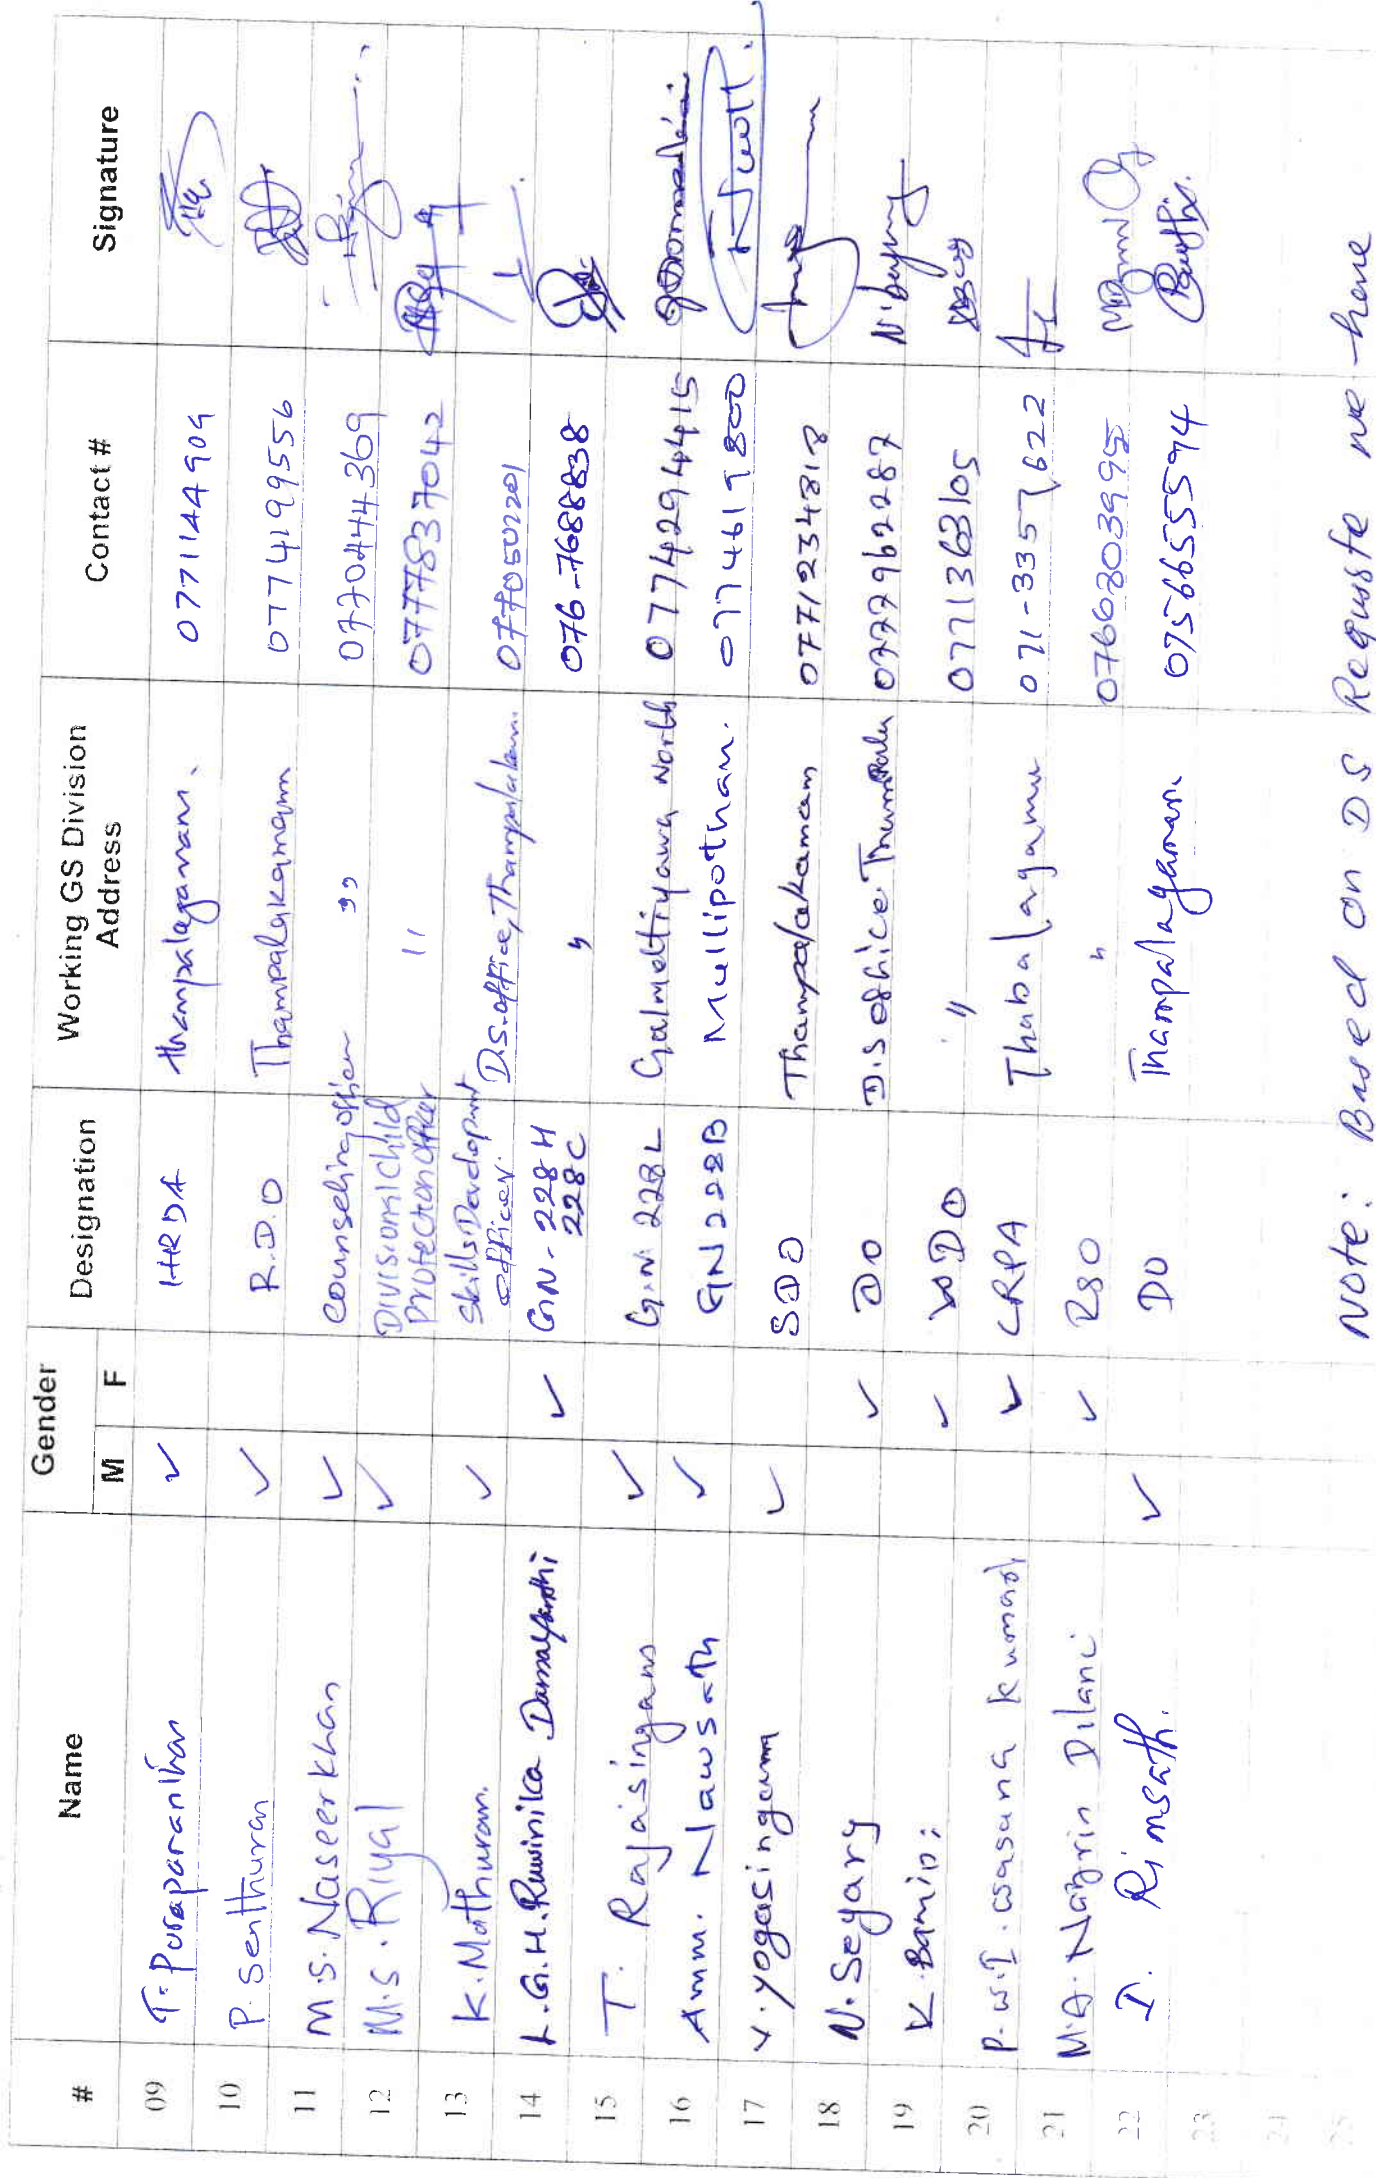 # Name Gender Designation Working GS Division Address Contact # Signature
M F
09 T. Puraparanthan ✓ HRDA thampalaganam. 0771144909
10 P. Senthuran ✓ R.D.O Thampalakamam 0774199556
11 M.S. Naseerkhan ✓ counseling officer ,, 0770444369
12 M.S. Riyal ✓ Divisional Child Protection Officer 11 0777837042
13 K. Mathuram. ✓ Skills Developmt officer. D.S. office, Thampalakam. 0770502201
14 L.G.H. Ruwinika Damayanthi ✓ GN - 228 H 228C " 076-7688838
15 T. Rajasingam ✓ G.N. 228 L Galmetiyawa North 0774294415
16 A.M.M. Nawsath ✓ GN 228B Mullipotham. 0774619800
17 Y. Yogasingam ✓ SDO Thampalakamam 0771234818
18 N. Seyary ✓ DO D.S office 0777962287
19 K. Bamini ✓ WDO " 0771363105
20 P.W.I. wasana kumari ✓ CRPA Thabalagamu 071-3357622
21 M.A. Nazrin Dilani ✓ RSO " 0766303995
22 I. Rimsath. ✓ DO Thampalagamam 0756655594
23
24
25
Note: Based on DS Requste we have